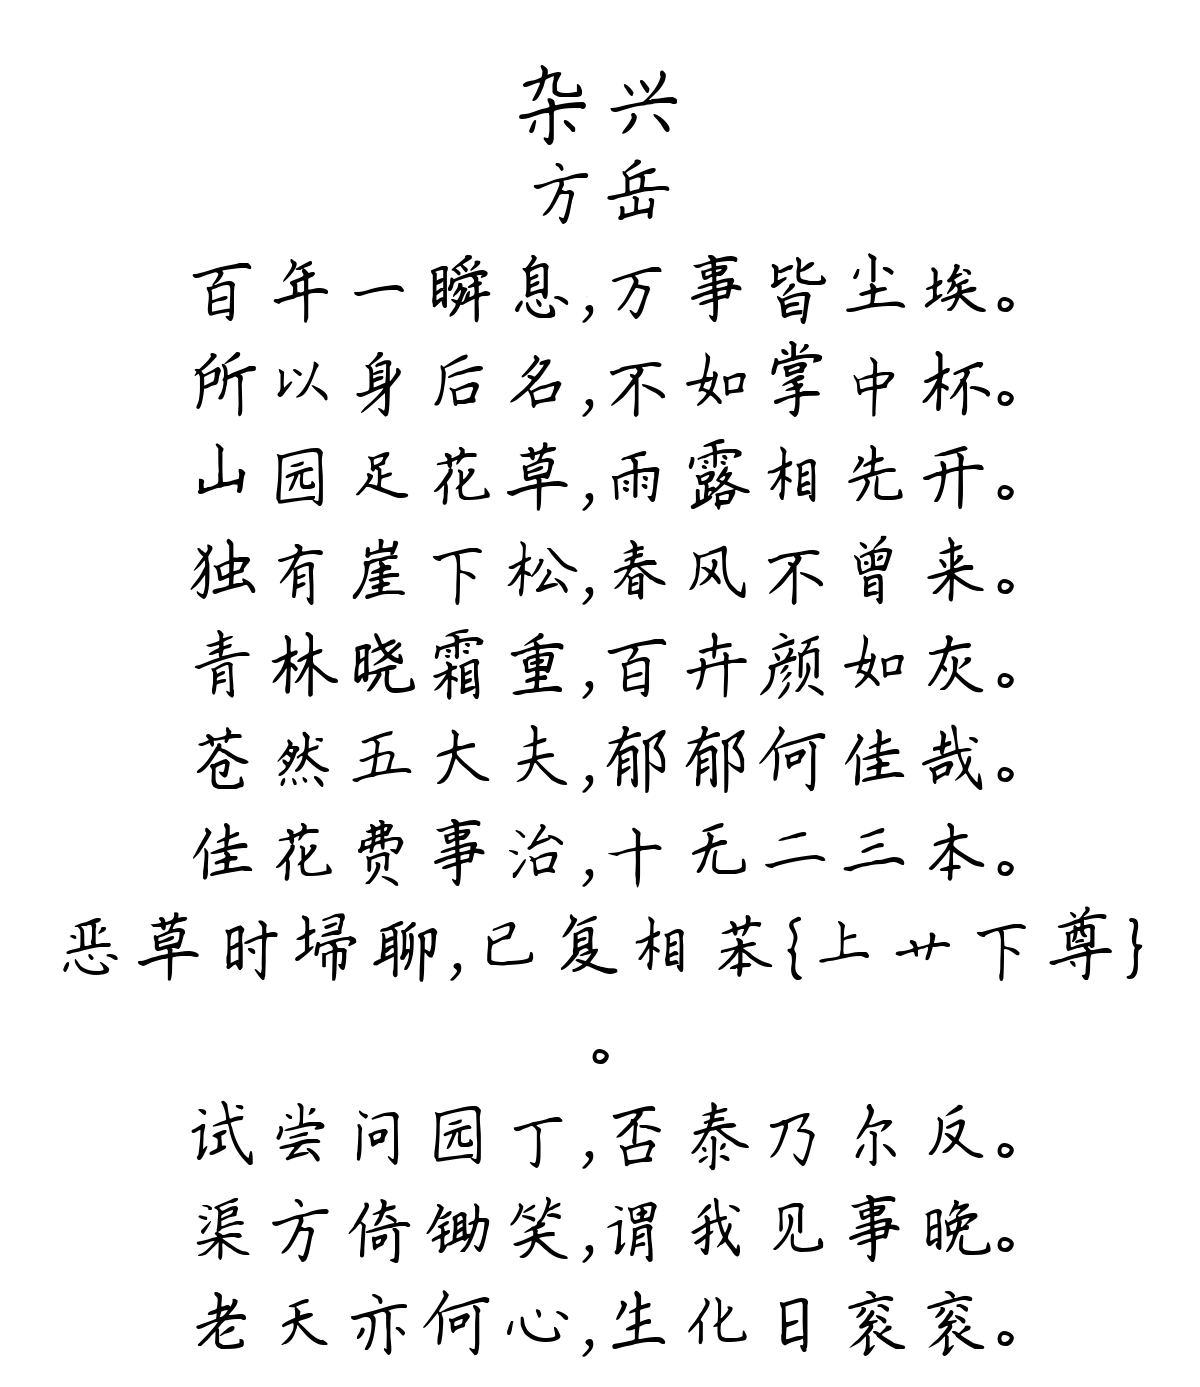 杂兴
方岳
百年一瞬息,万事皆尘埃。
所以身后名,不如掌中杯。
山园足花草,雨露相先开。
独有崖下松,春风不曾来。
青林晓霜重,百卉颜如灰。
苍然五大夫,郁郁何佳哉。
佳花费事治,十无二三本。
恶草时埽聊,已复相苯{上艹下尊}
。
试尝问园丁,否泰乃尔反。
渠方倚锄笑,谓我见事晚。
老天亦何心,生化日衮衮。